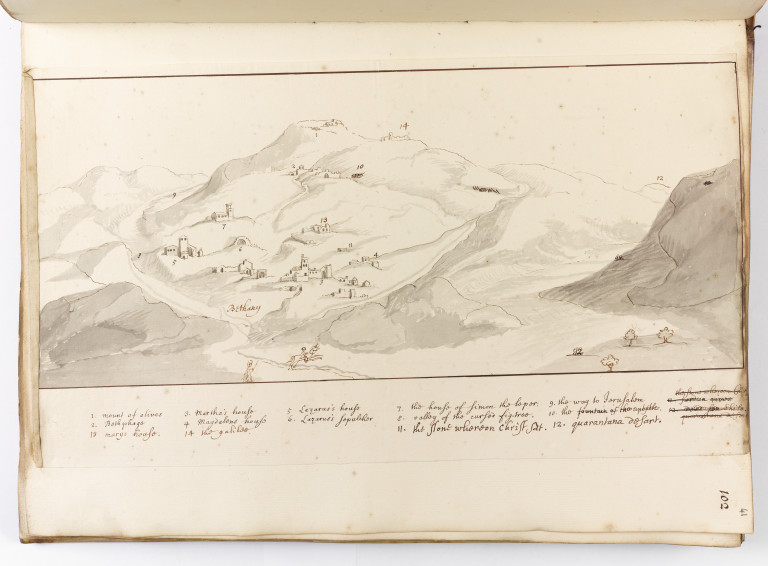 14
1
10
12
9
7
13
6
5
11
4
8
3
Bethany
1. mount of olives
2. Bethphage
13 marys house.
3. Martha's house
4 Magdalens house
14 the galilee
5 Lazarus's house
6. Lazarus's sepulcher
7. the house of simon the leper.
8. valley of the cursed figtree.
11. the stone whereon Christ sat.
9. the way to Jerusalem
10. the fountain of the apostles
12. quarantana desart.
102